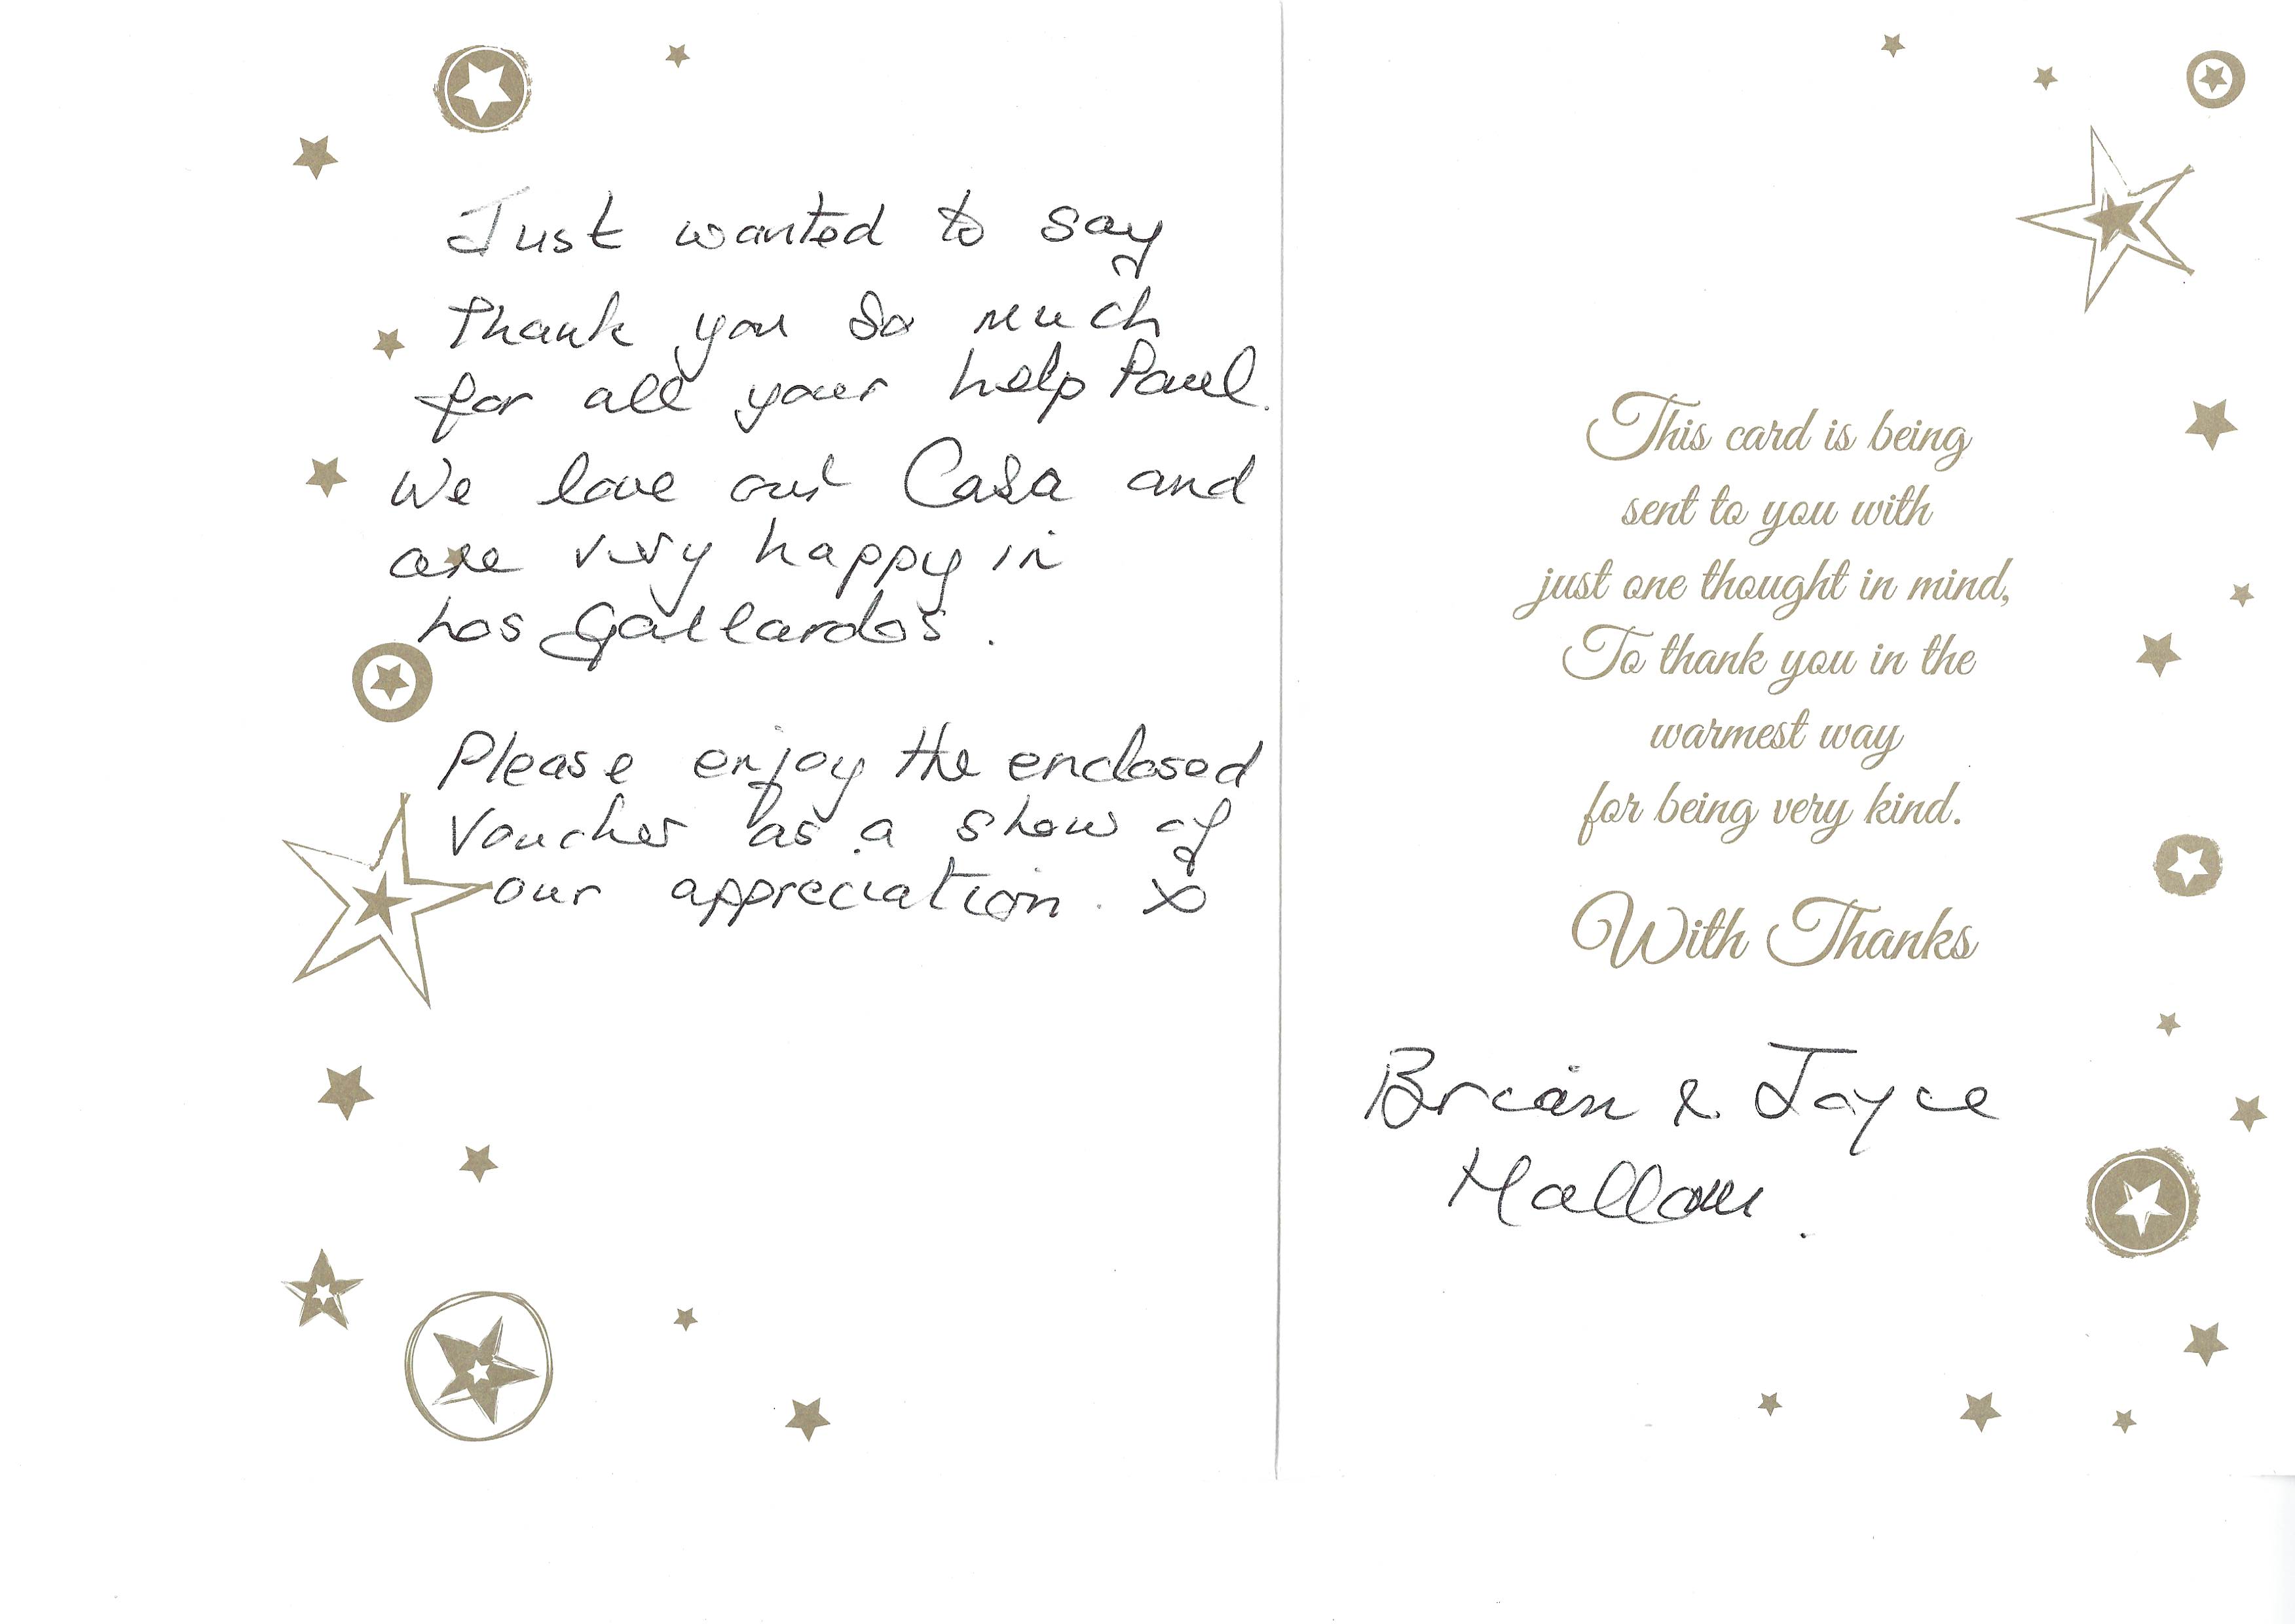 Just wanted to say
Thank you so much
for all your help Paul.
We love our Casa and
are very happy in
Los Gallardos.
Please enjoy the enclosed
Voucher as a show of
our appreciation. X
This card is being
sent to you with
just one thought in mind,
To thank you in the
warmest way
for being very kind.
With Thanks
Brian & Joyce